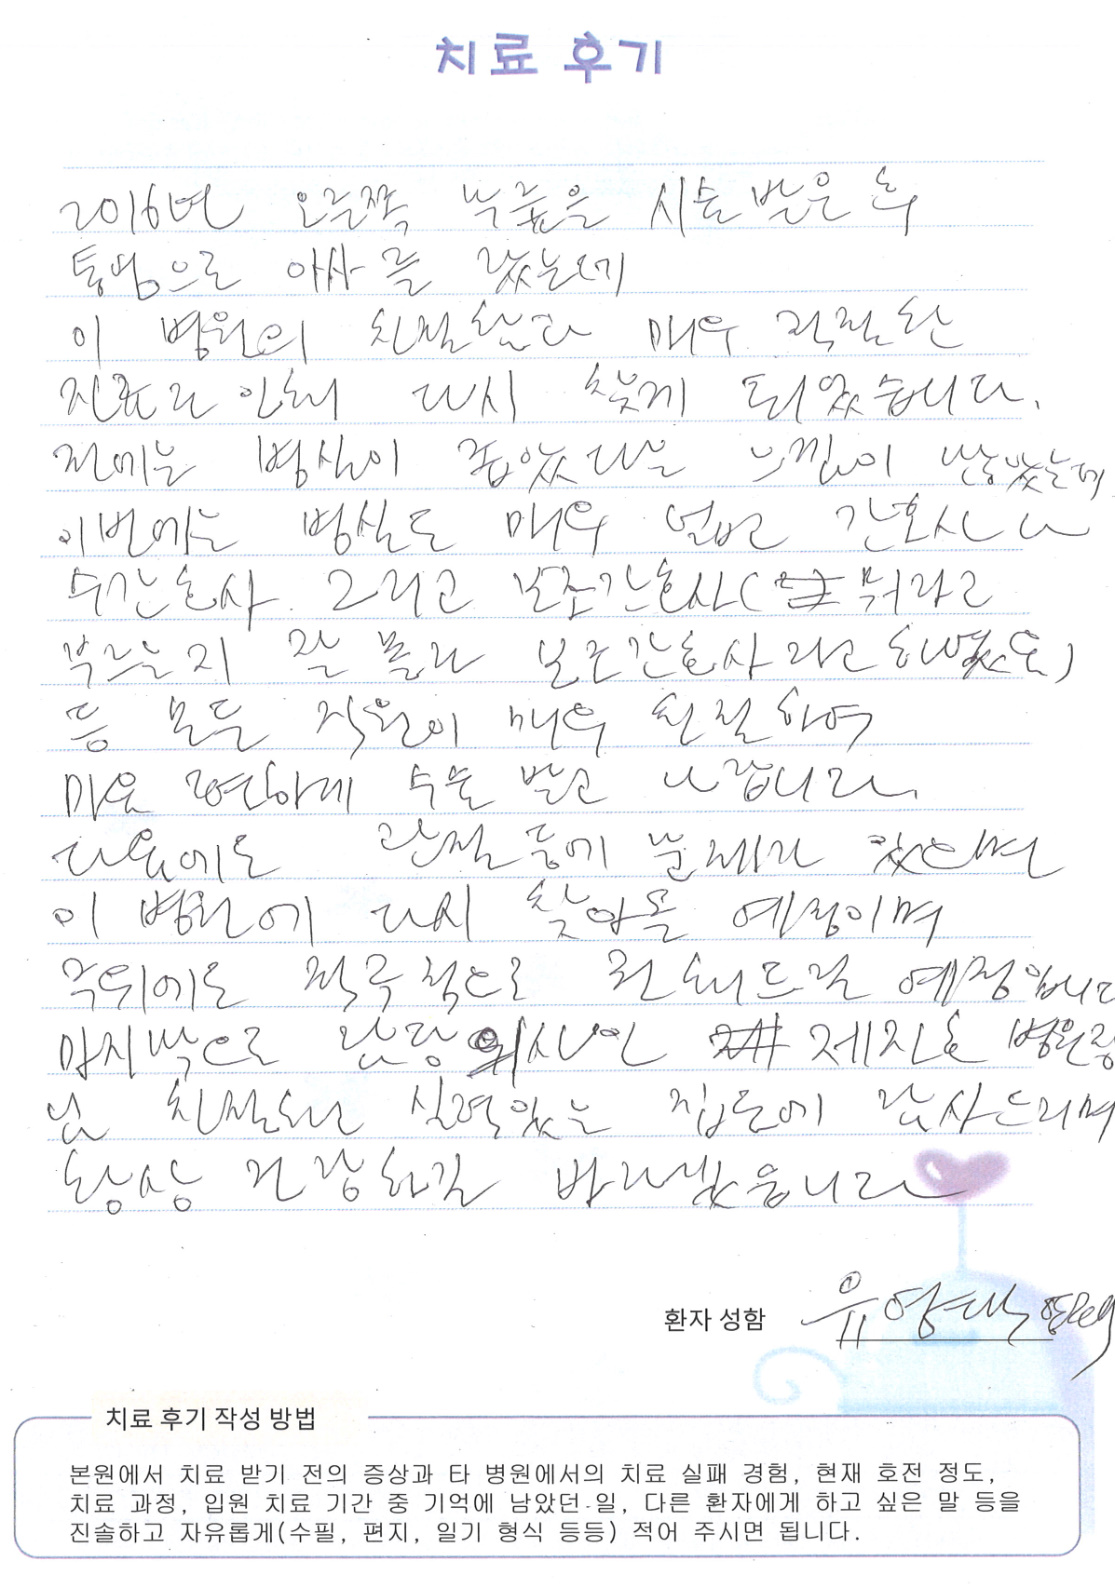 치료 후기
2016년 오른쪽 무릎을 시술 받은 후
통영으로 이사를 갔는데
이 병원의 친절함과 매우 적절한
진료로 인해 다시 찾게 되었습니다.
전에는 병실이 좁았다는 느낌이 많았는데
이번에는 병실도 매우 넓고 간호사나
수간호사 그리고 보조간호사( 뭐라고
부르는지 잘 몰라 보조간호사라고 하였음)
등 모든 직원이 매우 친절하여
마음 편하게 수술 받고 나갑니다.
다음에도 관절 등에 문제가 있으면
이 병원에 다시 찾아올 예정이며
주위에도 적극적으로 권해드릴 예정입니다
마지막으로 담당 의사인 제진호 병원장
님 친절하고 실력있는 집도에 감사드리며
항상 건강하길 바라겠습니다
환자 성함 유영대
치료 후기 작성 방법
본원에서 치료 받기 전의 증상과 타 병원에서의 치료 실패 경험, 현재 호전 정도,
치료 과정, 입원 치료 기간 중 기억에 남았던 일, 다른 환자에게 하고 싶은 말 등을
진솔하고 자유롭게(수필, 편지, 일기 형식 등등) 적어 주시면 됩니다.